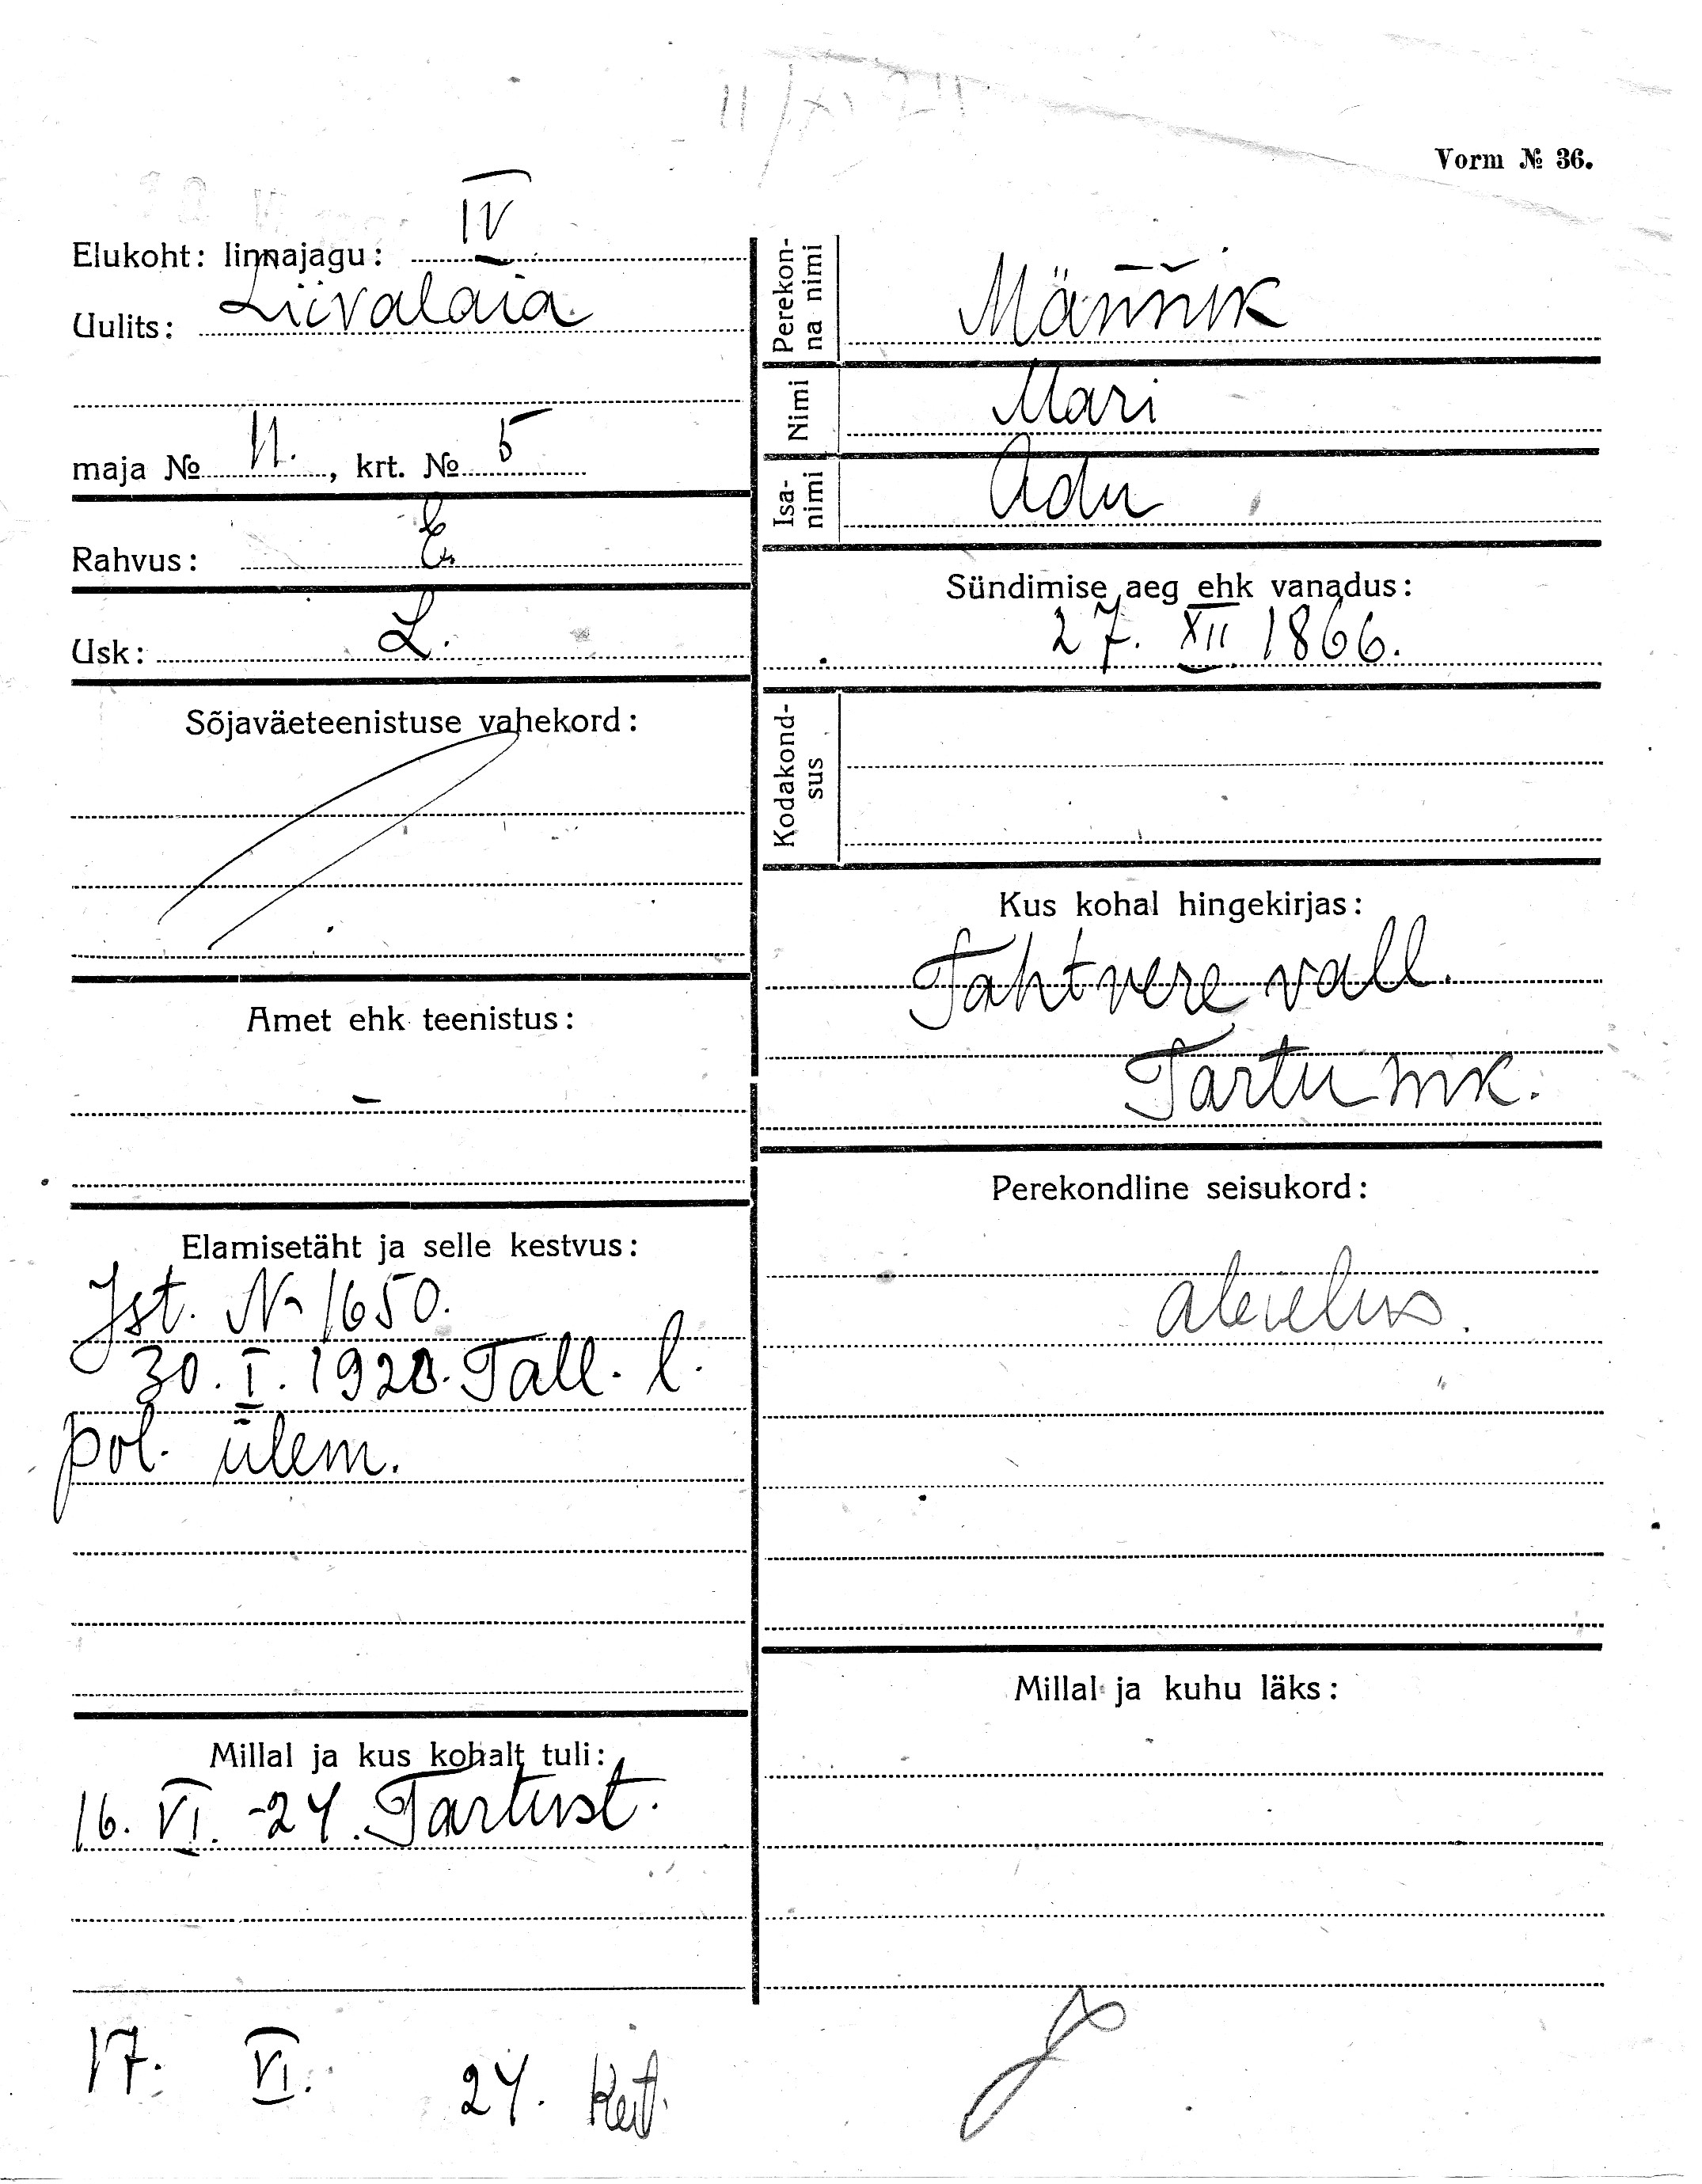 Vorm № 36.
Elukoht: linnajagu: IV
Uulits: Liivalaia
maja № 11., krt. № 5
Rahvus: E.
Usk: L.
Sõjaväeteenistuse vahekord:
Amet ehk teenistus:
–
Elamisetäht ja selle kestvus:
Ist. N 1650.
30. I. 1923. Tall. l.
pol. ülem.
Millal ja kus kohalt tuli:
16. VI. -24. Tartust.
17. VI. 24.
Perekon-
na nimi
Männik
Nimi
Mari
Isa-
nimi
Adu
Sündimise aeg ehk vanadus:
27. XII 1866.
Kodakond-
sus
Kus kohal hingekirjas:
Tähtvere vall.
Tartu mk.
Perekondline seisukord:
abielus.
Millal ja kuhu läks: